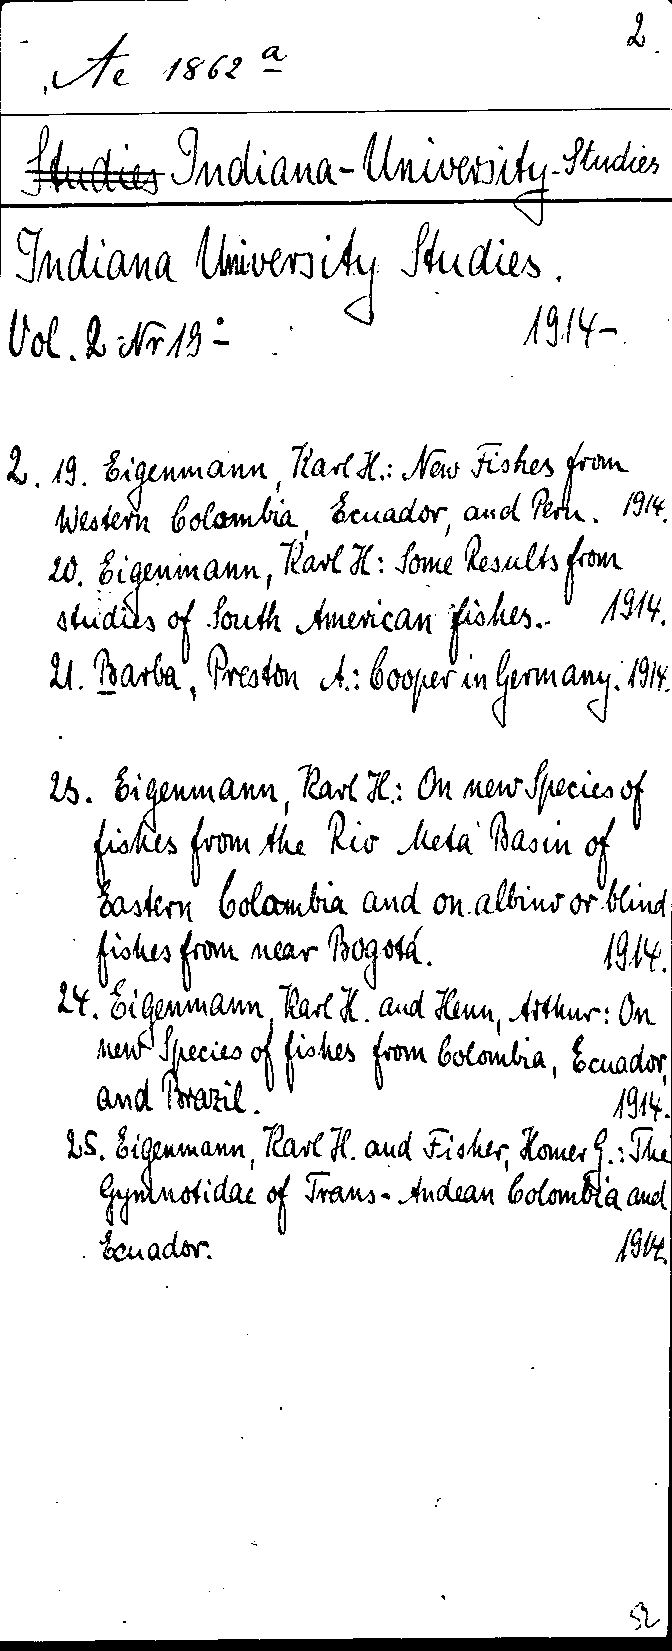 2.
Ae 1862 a
Studies Indiana-University-Studies
Indiana University Studies.
Vol. 2 Nr 19- 1914-
2. 19. Eigenmann, Karl H.: New Fishes from
Western Colombia, Ecuador, and Peru. 1914.
20. Eigenmann, Karl H: Some Results from
studies of South American fishes. 1914.
21. Barba, Preston A.: Cooper in Germany. 1914.
23. Eigenmann, Karl H.: On new Species of
fishes from the Rio Meta Basin of
Eastern Colombia and on albino or blind
fishes from near Bogotá. 1914.
24. Eigenmann, Karl H. and Henn, Arthur: On
new Species of fishes from Colombia, Ecuador,
and Brazil. 1914.
25. Eigenmann, Karl H. and Fisher, Homer G.: The
Gymnotidae of Trans-Andean Colombia and
Ecuador. 1914.